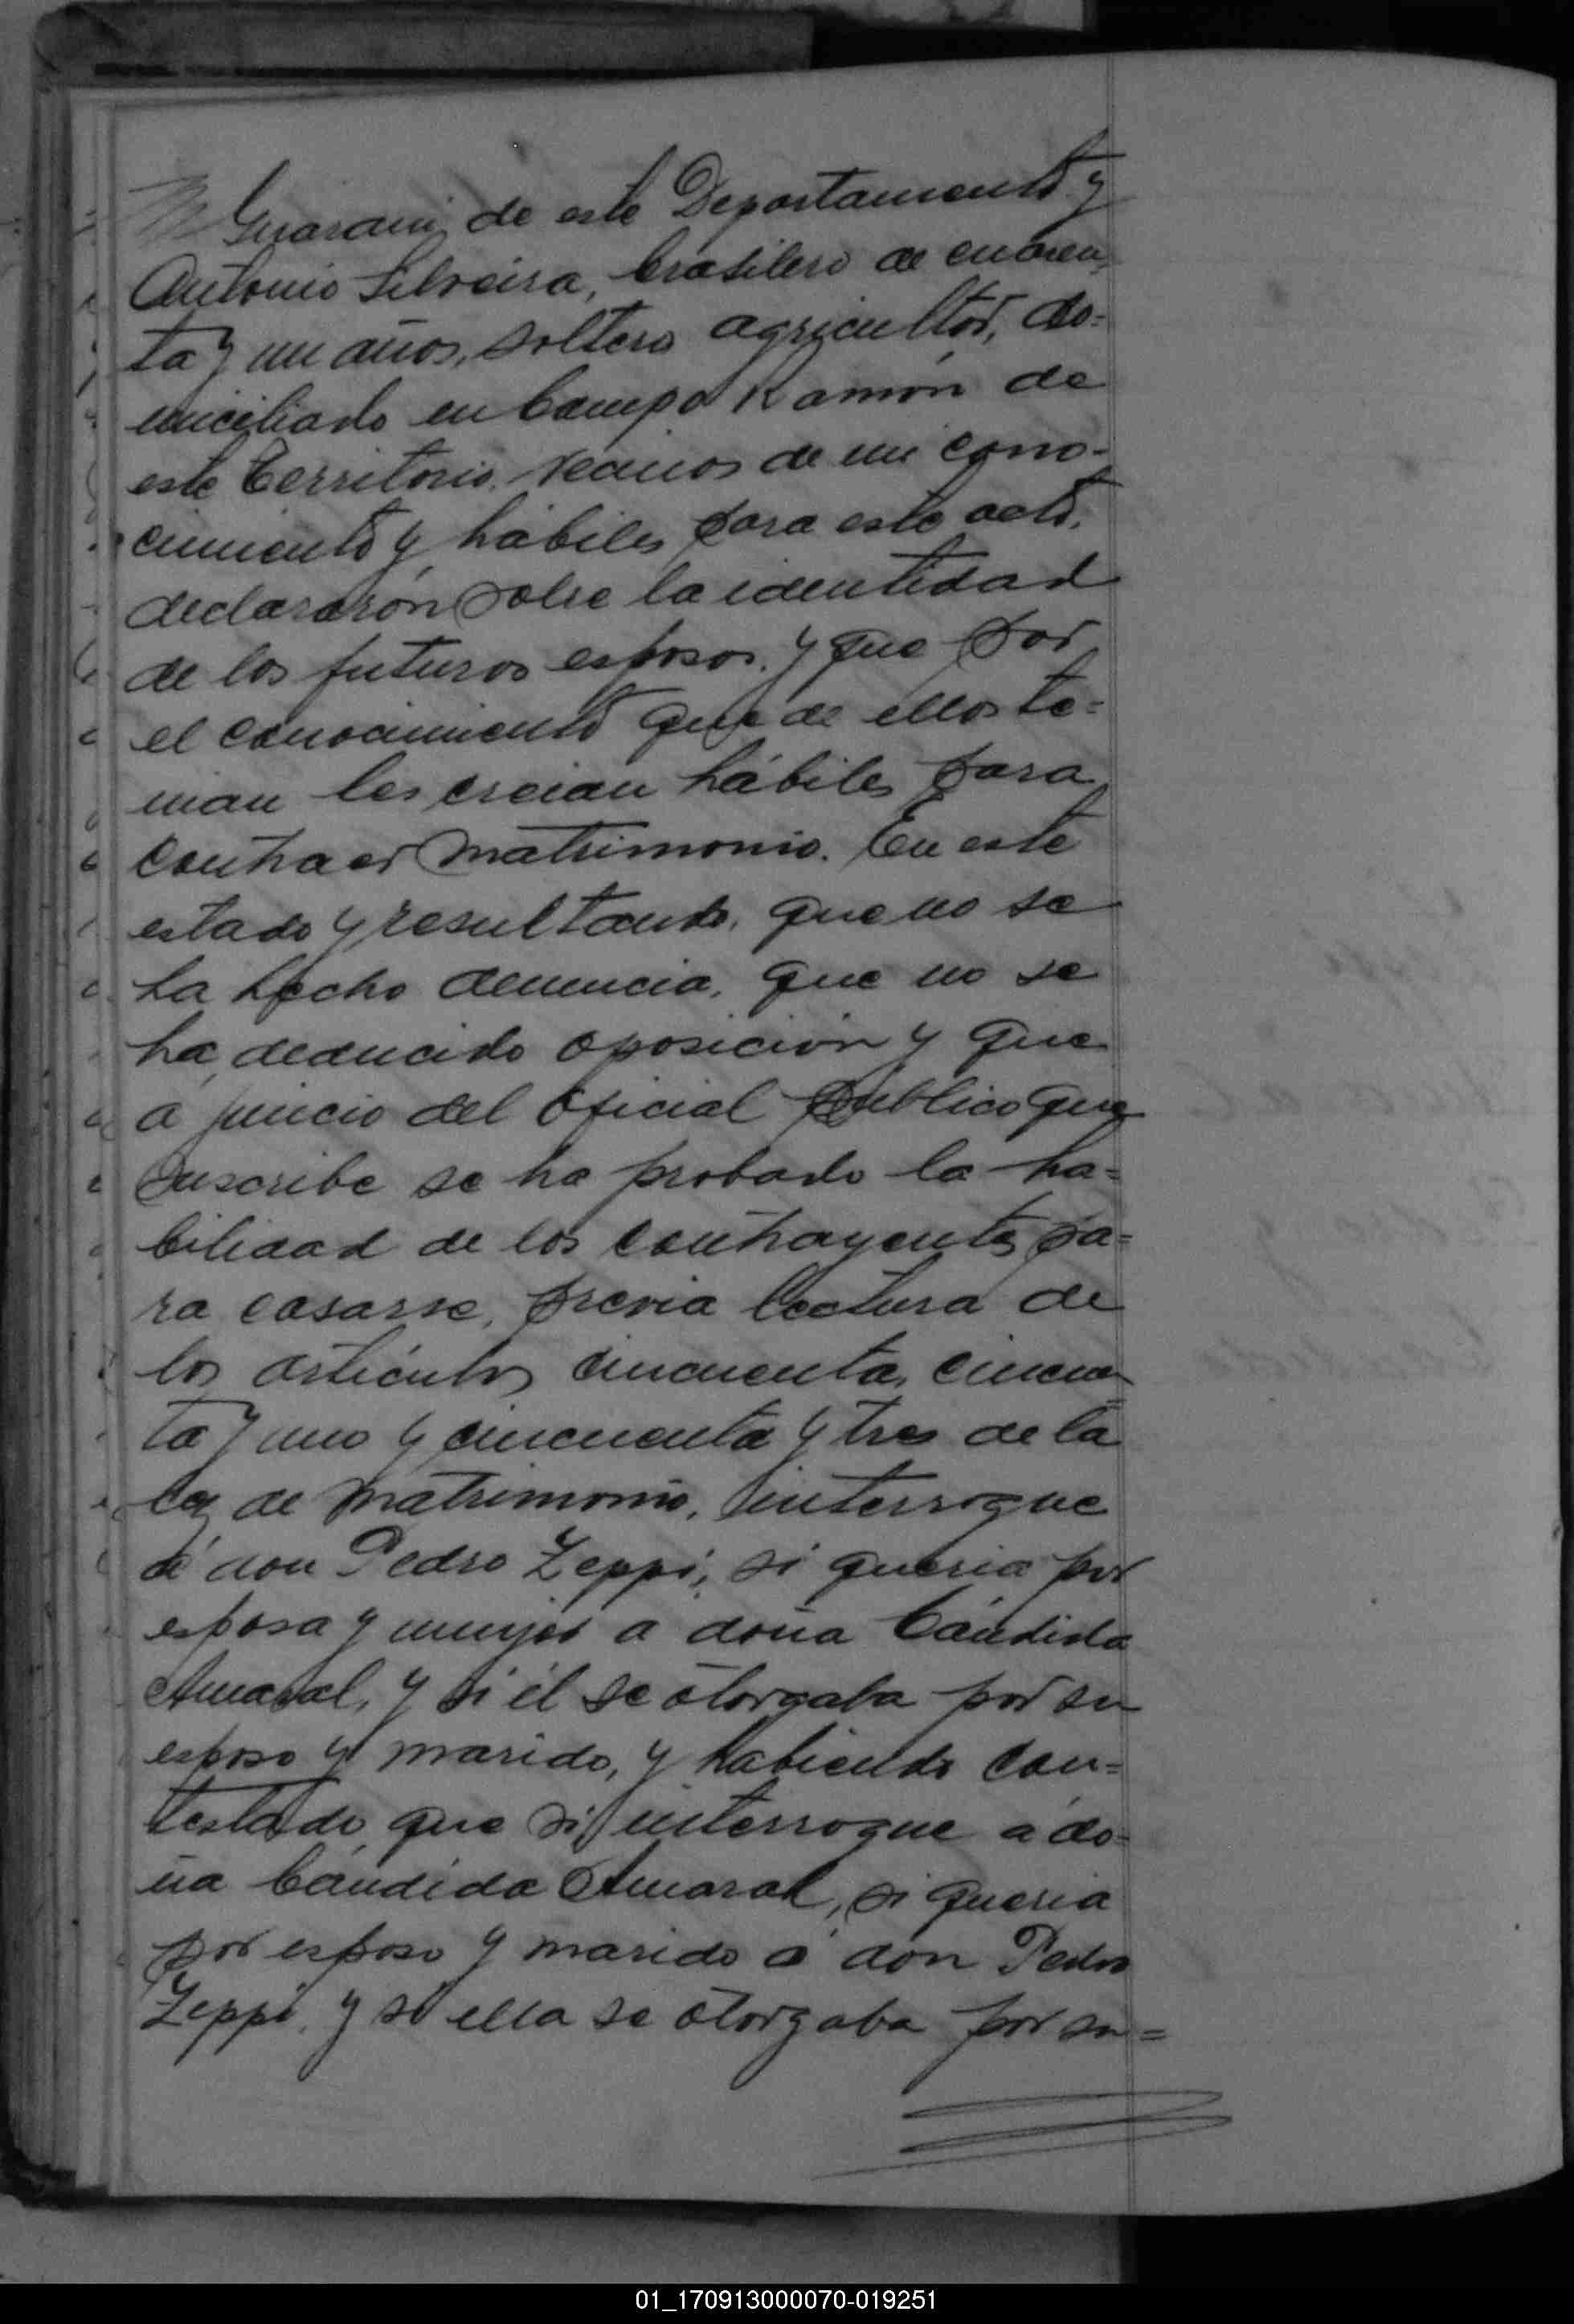 Guarani, de este Departamento y
Antonio Silveira, brasilero de cuaren,
ta y un años, soltero agricultor, do=
miciliado en Campo Ramón de
este Territorio, vecinos de mi cono-
cimiento y hábiles para este acto,
declararón sobre la identidad
de los futuros esposos, y que por
el conocimiento que de ellos te=
nian les creian hábiles para
contraer Matrimonio. En este
estado y resultando, que no se
ha hecho denuncia, que no se
ha deducido oposición y que
a juicio del Oficial Publico que
suscribe se ha probado la ha=
bilidad de los contrayentes pa=
ra casarse, previa lectura de
los articulos cincuenta, cincuen
ta y uno y cincuenta y tres de la
ley de Matrimonio, interrogue
á don Pedro Zeppi, si queria por
esposa y mujer a doña Cándida
Amaral, y si él se otorgaba por su
esposo y marido, y habiendo con=
testado que si interrogue a do=
ña Cándida Amaral, si queria
por esposo y marido á don Pedro
Zeppi, y si ella se otorgaba por su=
01_170913000070-019251